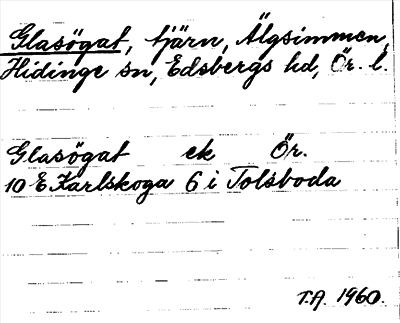 Glasögat, tjärn, Älgsimmen,
Hidinge sn, Edsbergs hd, Ör. l.
Glasögat ek Ör.
10 E Karlskoga 6 i Tolsboda
T.A. 1960.